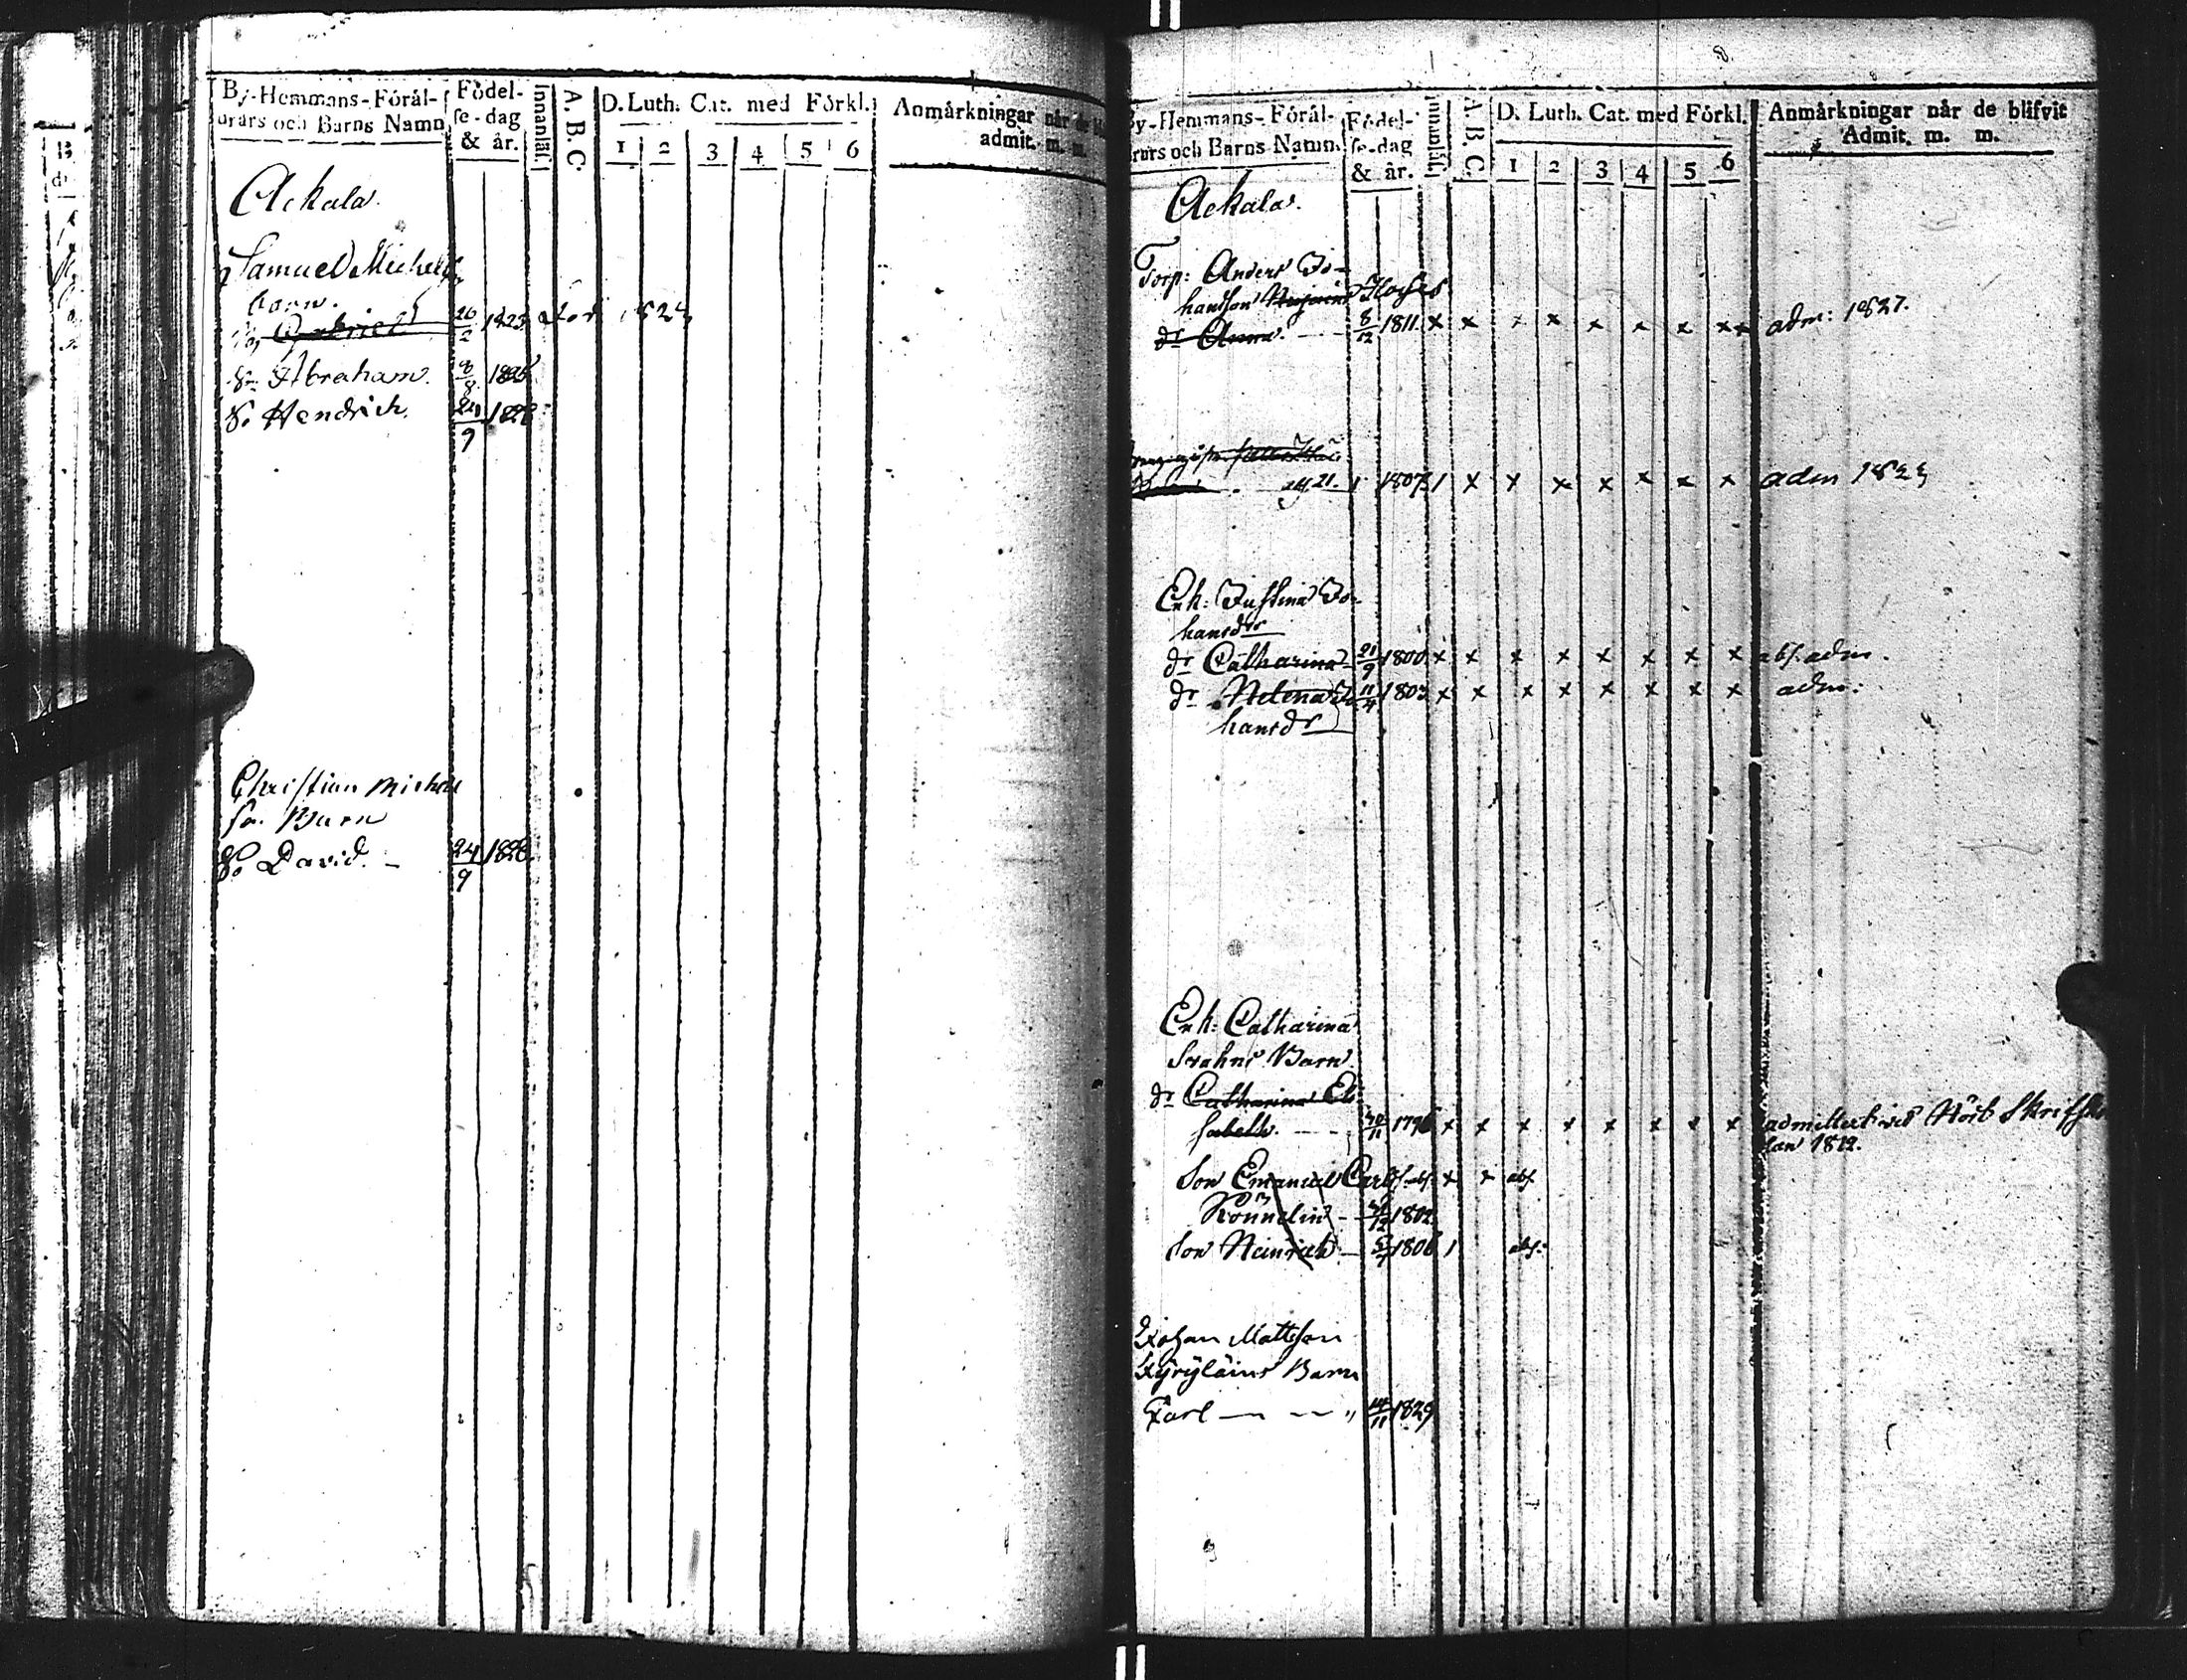 By-Hemmans-Föräl-
drars och Barns Namn
Födel-
se-dag
& år.
Innanläs.
A. B. C.
D. Luth. Cat. med Förkl.
1 2 3 4 5 6
Anmärkningar når de
admit. m. m.
Ackala.
Samuel Michels
barn.
Gabriel 26/2 1823 1824
Sn Abraham. 8/8 1825
So Hendrich. 24/9 1828
Christian Michels
So. Barn
So David. - 24/9 1828
By-Hemmans-Föräl-
drars och Barns Namn.
Födel-
se-dag
& år.
Innanläs.
A. B. C.
D. Luth. Cat. med Förkl.
1 2 3 4 5 6
Anmärkningar når de blifvit
Admit. m. m.
Ackala.
Torp: Anders Jo-
hansson
dr Anna. 8/12 1811 x x x x x x x x x adm: 1827.
21. 1807 1 x x x x x x x adm 182
Enk: Justina Jo-
hansdr
dr Catharina 21/9 1800 x x x x x x x x abs. adm.
dr Helena Jo 11/4 1803 x x x x x x x x adm:
hansdr
Enk: Catharina
Barn
dr Catharina Eli
sabeth. 11 179 x x x x x x x x admitterat vid Skrifsko
lan 1812.
Son Emanuel Carl abs. x x abs.
Rönnelin - 12 1802
Son Heinrich - 5/7 1806 1 abs.
Johan Mattsson
Kyryläins Barn
Karl - - - " 14/11 1829